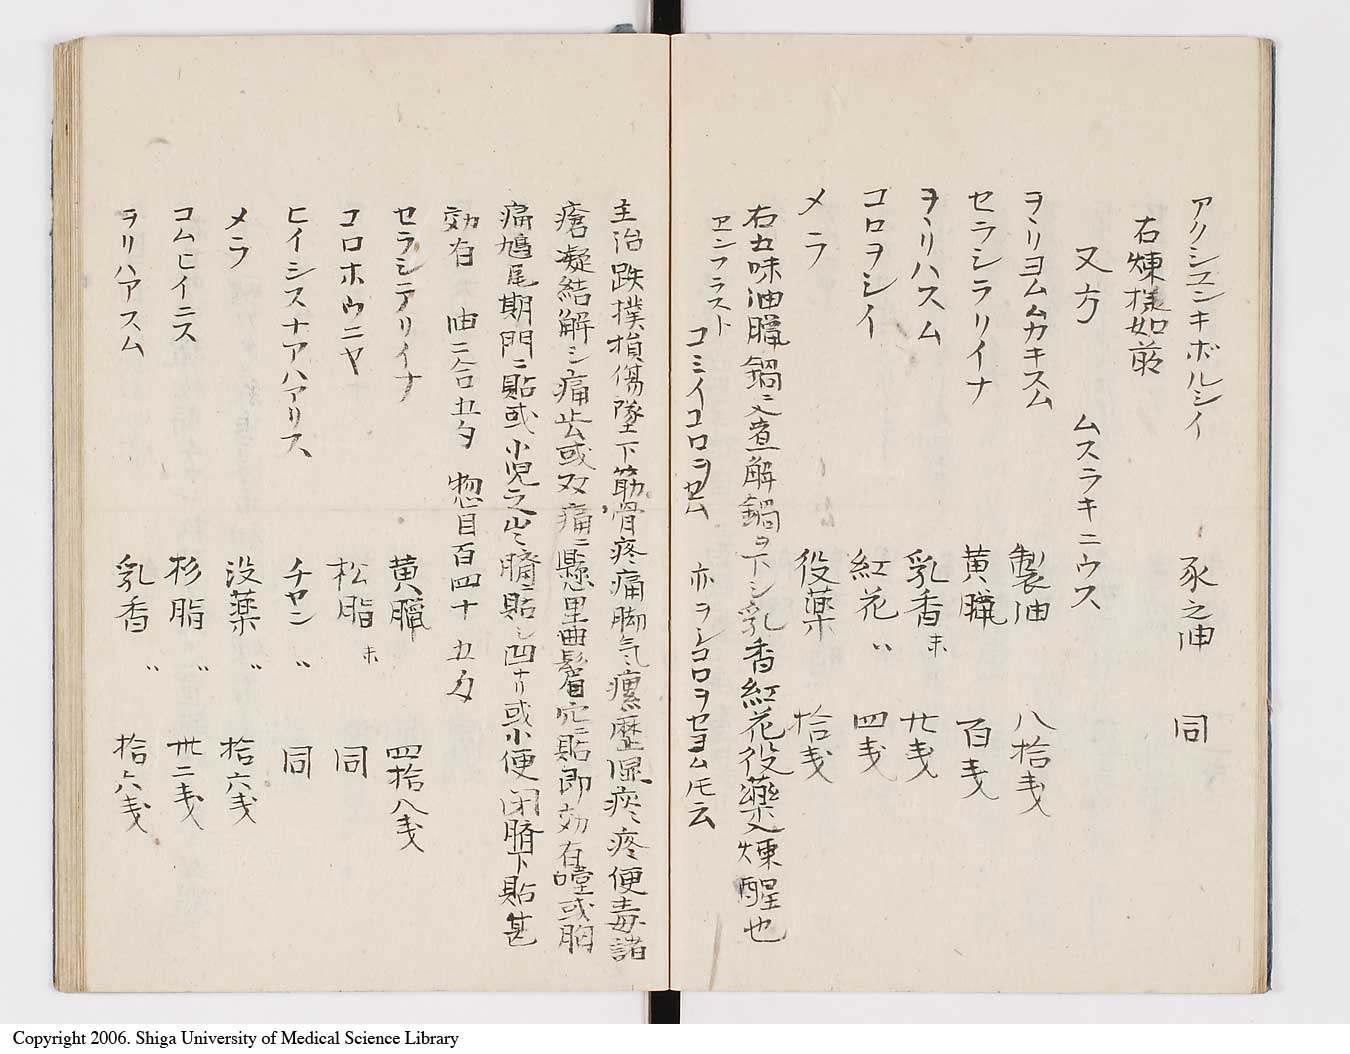 アクシユンキボルシイ 豕之油 同
右煉様如前
又方 ムスラキニウス
ヲヽリヨムムカキスム 製油 八拾戔
セラシラリイナ 黄臘 百戔
ヲヽリハスム 乳香末 廿戔
コロヲシイ 紅花〃 四戔
メラ 役薬 拾戔
右五味油臘鍋ニ入煮解鍋ヲ下シ乳香紅花役薬入煉醒也
ヱンフラスト コミイコロヲセム 亦ヲシコロヲセヨムモ云
主治跌撲損傷墜下筋骨疼痛脚気瘰歴湿疾疼便毒諸
瘡凝結解シ痛去或双痛ニ懸里曲鬢穴ニ貼即効有嚏或胸
痛鳩尾期門ニ貼或小児之 臍ニ貼シ 或小便閉臍下貼甚
効有 油二合五匁 惣目百四十五匁
セラシテリイナ 黄臘 四拾八戔
コロホウニヤ 松脂末 同
ヒイシスナアハアリス チヤン〃 同
メラ 没薬〃 拾六戔
コムヒイニス 杉脂〃 卅二戔
ヲリハアスム 乳香〃 拾六戔
Copyright 2006. Shiga University of Medical Science Library